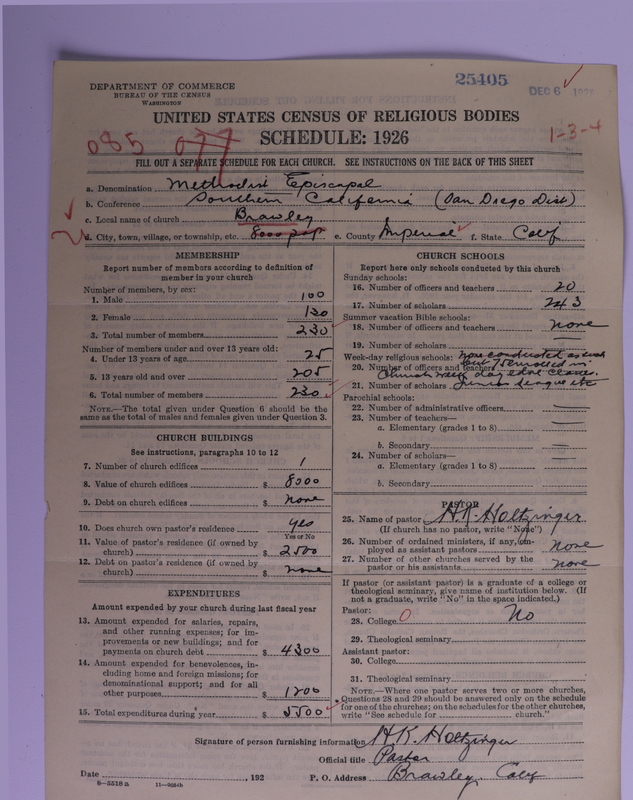 25405
DEC 6 192
DEPARTMENT OF COMMERCE
BUREAU OF THE CENSUS
WASHINGTON
UNITED STATES CENSUS OF RELIGIOUS BODIES
SCHEDULE: 1926
085 077
1-3-4
FILL OUT A SEPARATE SCHEDULE FOR EACH CHURCH. SEE INSTRUCTIONS ON THE BACK OF THIS SHEET
a. Denomination Methodist Episcopal
b. Conference Southern California (San Diego Dist)
c. Local name of church Brawley
d. City, town, village, or township, etc. 8000 pop e. County Imperial f. State Calif
MEMBERSHIP
Report number of members according to definition of member in your church
Number of members, by sex:
1. Male 100
2. Female 130
3. Total number of members 230
Number of members under and over 13 years old:
4. Under 13 years of age 25
5. 13 years old and over 205
6. Total number of members 230
NOTE.—The total given under Question 6 should be the
same as the total of males and females given under Question 3.
CHURCH BUILDINGS
See instructions, paragraphs 10 to 12
7. Number of church edifices 1
8. Value of church edifices $ 8000
9. Debt on church edifices $ none
10. Does church own pastor's residence yes
Yes or No
11. Value of pastor's residence (if owned by
church) $ 2500
12. Debt on pastor's residence (if owned by
church) $ none
EXPENDITURES
Amount expended by your church during last fiscal year
13. Amount expended for salaries, repairs,
and other running expenses; for im-
provements or new buildings; and for
payments on church debt $ 4300
14. Amount expended for benevolences, in-
cluding home and foreign missions; for
denominational support; and for all
other purposes $ 1200
15. Total expenditures during year $ 5500
CHURCH SCHOOLS
Report here only schools conducted by this church
Sunday schools:
16. Number of officers and teachers 20
17. Number of scholars 243
Summer vacation Bible schools:
18. Number of officers and teachers none
19. Number of scholars
Week-day religious schools: none conducted as such
but 75 enrolled in
20. Number of officers and teachers
Church week day school classes.
21. Number of scholars Junior League etc
Parochial schools:
22. Number of administrative officers
23. Number of teachers—
a. Elementary (grades 1 to 8)
b. Secondary
24. Number of scholars—
a. Elementary (grades 1 to 8)
b. Secondary
PASTOR
25. Name of pastor H.K. Holtzinger
(If church has no pastor, write "None")
26. Number of ordained ministers, if any, em-
ployed as assistant pastors none
27. Number of other churches served by the
pastor or his assistants none
If pastor (or assistant pastor) is a graduate of a college or
theological seminary, give name of institution below. (If
not a graduate, write "No" in the space indicated.)
Pastor:
28. College 0 No
29. Theological seminary
Assistant pastor:
30. College
31. Theological seminary
NOTE.—Where one pastor serves two or more churches,
Questions 28 and 29 should be answered only on the schedule
for one of the churches; on the schedules for the other churches,
write "See schedule for church."
Signature of person furnishing information H.K. Holtzinger
Official title Pastor
Date , 192 P. O. Address Brawley, Calif
8—5518a 11—9684b